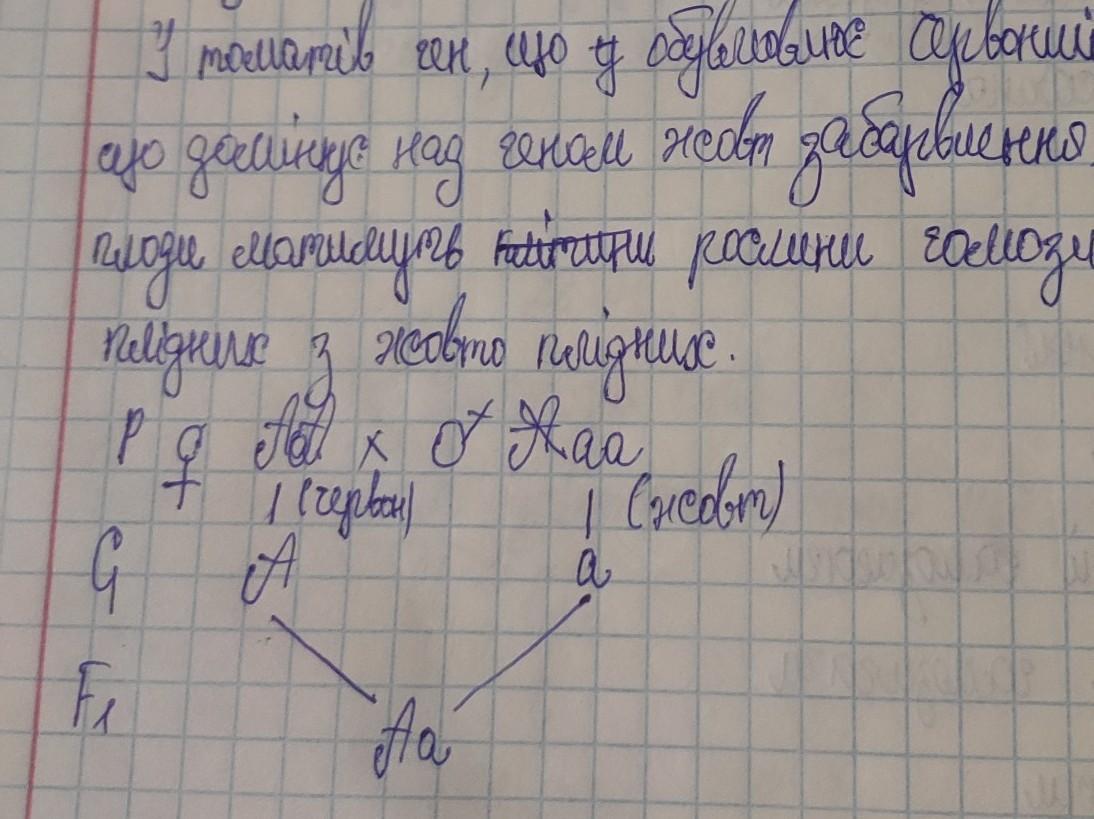 У томатів ген, що у обумовлює червоний
що домінує над геном жовт забарвлення
плоди матимуть рослини гомози
плідних з жовто плідних.
P ♀ АА х ♂ аа
(червон) (жовт)
G А а
F1
Аа